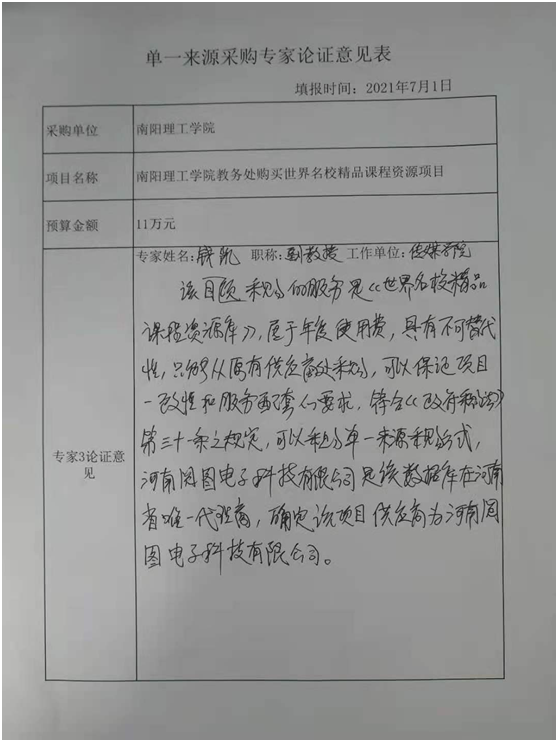 单一来源采购专家论证意见表
填报时间：2021年7月1日
采购单位 南阳理工学院
项目名称 南阳理工学院教务处购买世界名校精品课程资源项目
预算金额 11万元
专家3论证意见
专家姓名：钱凯 职称：副教授 工作单位：传媒学院
该项目采购的服务是《世界名校精品
课程资源库》，属于年度使用费，具有不可替代
性，只能从原有供应商处采购，可以保证项目
一致性和服务配套的要求，符合《政府采购法》
第三十一条之规定，可以采购单一来源采购方式，
河南阅图电子科技有限公司是该数据库在河南
省唯一代理商，确定该项目供应商为河南阅
图电子科技有限公司。